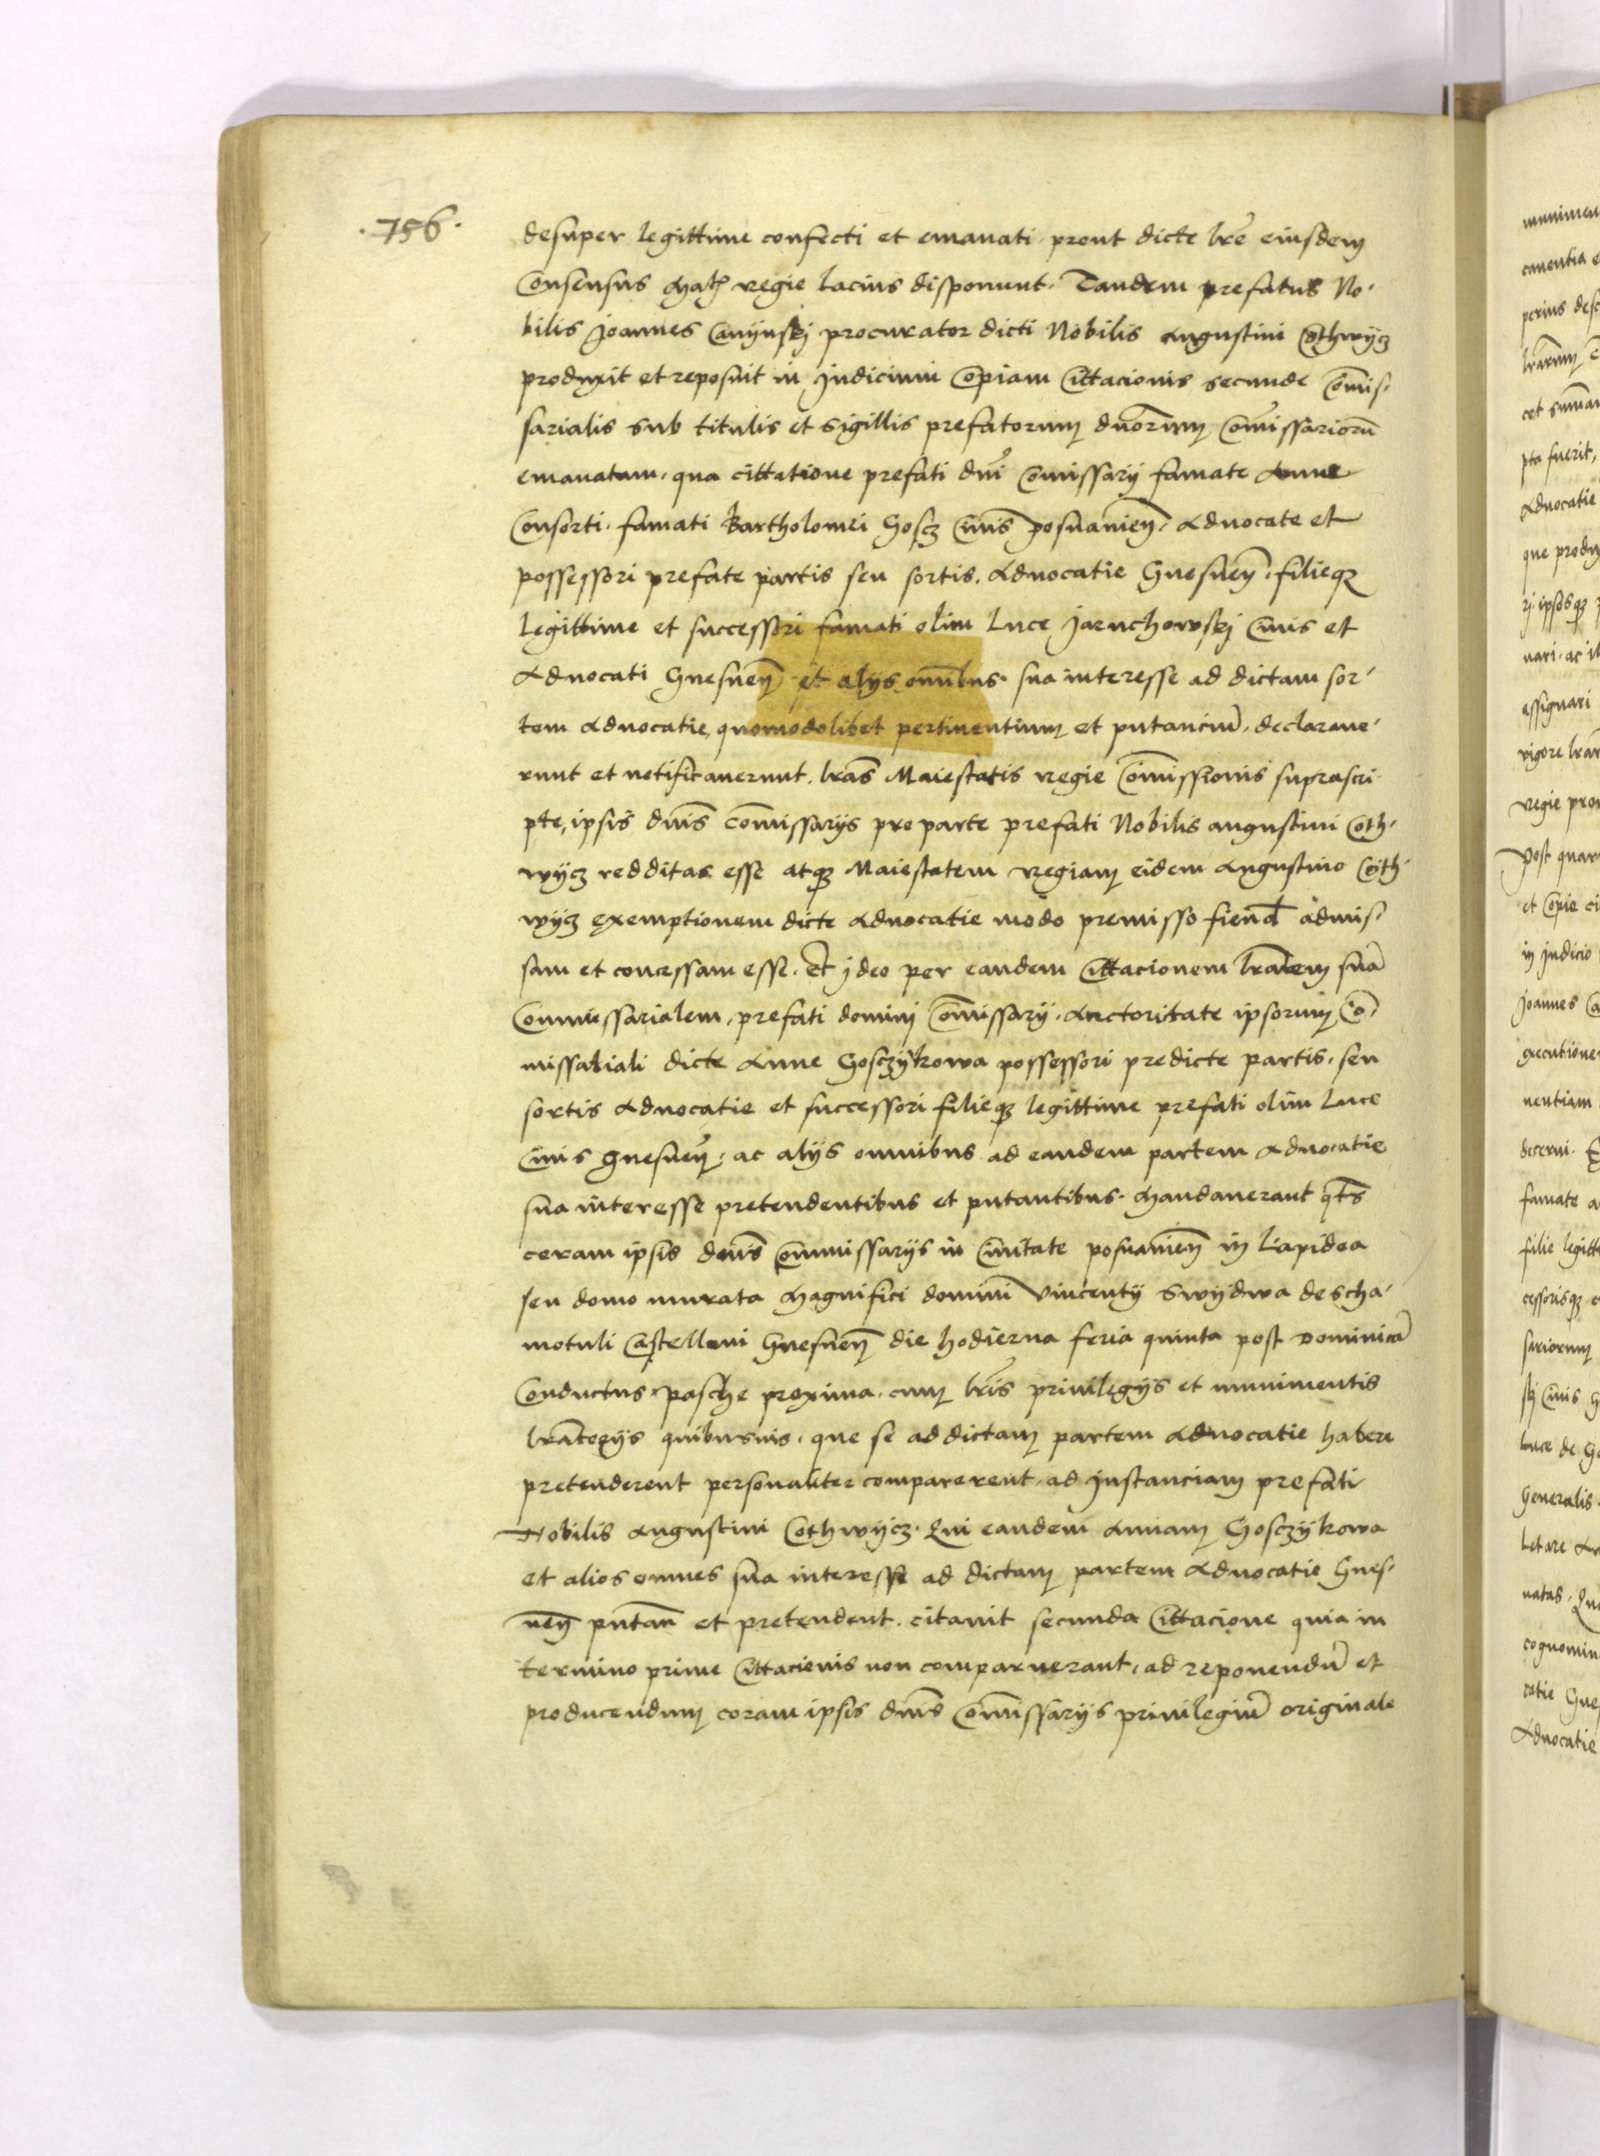 .756.
desuper legittime confecti et emanati. prout dicte lrẽ eiusdem
Consensus Matis regie lacius disponunt. Tandem prefatus No-
bilis Joannes procurator dicti Nobilis Augustini Cothwycz
produxit et reposuit in Judicium Copiam Cittacionis secunde Com̃is-
sarialis sub titulis et sigillis prefatorum dnorum Com̃issarioru͂
emanatam. qua cittatione prefati dnĩ Com̃issarij famate Anne
Consorti. famati Bartholomei Goscz Ciuis posnanien. Aduocate et
possessori prefate partis seu sortis. Aduocatie Gnesnen. filieqz
legittime et successori famati olim Luce Jaruchowskj Ciuis et
Aduocati Gnesnen et alijs omnibus. sua interesse ad dictam sor-
tem Aduocatie, quomodolibet pertinentium et putanciu͂. declaraue-
runt et notificauerunt. lras Maiestatis regie Com̃issionis suprascri-
pte, ipsis dnis com̃issarijs pro parte prefati Nobilis augustini Coth-
wycz redditas esse atqz Maiestatem regiam eidem Augustino Coth-
wycz exemptionem dicte Aduocatie modo premisso fiend admis-
sam et concessam esse. Et ideo per eandem Cittacionem sua͂
Commissarialem, prefati dominj Com̃issarij. Auctoritate ipsorum Co͂-
missariali dicte Anne Gosczykowa possessori predicte partis. seu
sortis Aduocatie et successori filieqz legittime prefati olim Luce
Ciuis gnesnen. ac alijs omnibus ad eandem partem Aduocatie
sua interesse pretendentibus et putantibus. Mandauerant qts
coram ipsis dnis Commissarijs in Ciuitate posnanien in Lapidea
seu domo murata Magnifici domini Vincentij Swydwa de Scha-
motuli Castellani Gnesnen die hodierna feria quinta post dominica͂
Conductus pasche proxima. cum lris priuilegijs et munimentis
quibusuis. que se ad dictam partem Aduocatie habere
pretenderent personaliter comparerent. ad Jnstanciam prefati
Nobilis Augustini Cothwycz. Qui eandem Annam Gosczykowa
et alios omnes sua interesse ad dictam partem Aduocatie Gnes-
nen putan et pretendent. citauit secunda Cittacione quia in
termino prime Cittacionis non comparuerant, ad reponendu͂ et
producendum coram ipsis dnis Com̃issarijs priuilegiu͂ originale